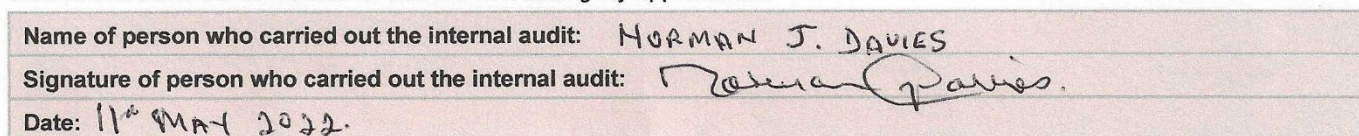 Name of person who carried out the internal audit: NORMAN J. DAVIES
Signature of person who carried out the internal audit: Norman J Davies.
Date: 11th MAY 2022.